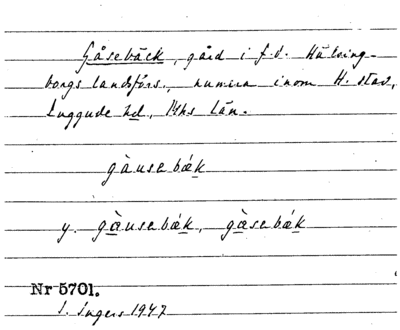 Gåsebäck, gård i f.d. Hälsing-
borgs landsförs., numera inom H. stad,
Luggude hd, Mhs län.
gàusebǽk
y. gàusebǽk, gàsebǽk
Nr 5701.
I. Ingers 1947